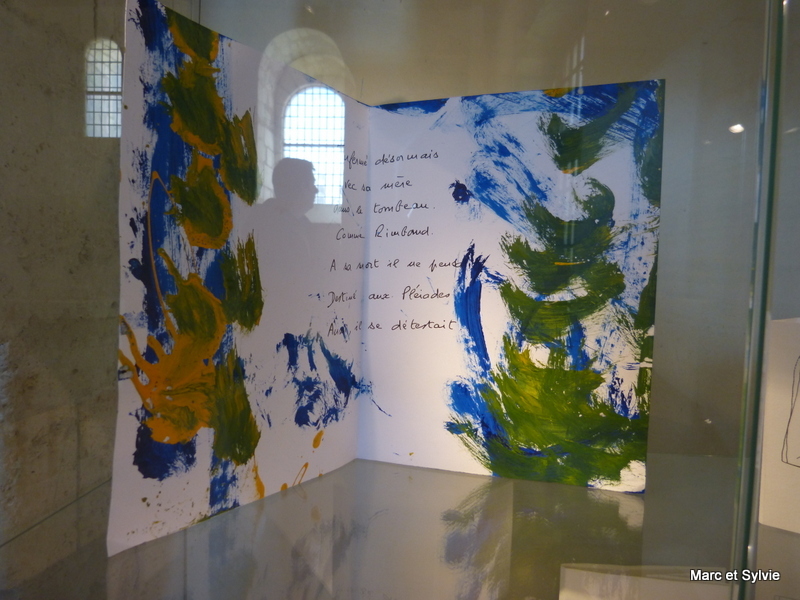 désormais
avec sa mère
dans le tombeau.
Comme Rimbaud.
A sa mort il ne
Destiné aux Pléiades
Ainsi il se détestait
Marc et Sylvie